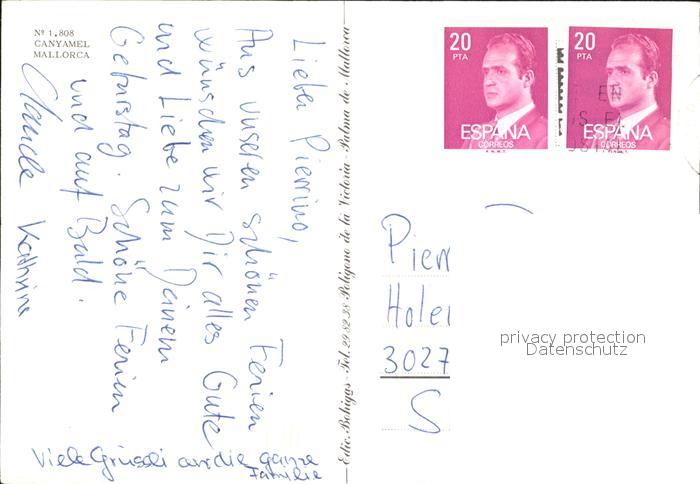 Nº 1.808
CANYAMEL
MALLORCA
Lieber Pierrino,
Aus unseren schönen Ferien
wünschen wir Dir alles Gute
und Liebe zum Deinem
Geburtstag. Schöne Ferien
und auf Bald.
Claude Kathrine
Viele Grüssli an die ganze
Familie
Edic. Bohigas - Tel. 29 82 38 Polígono de la Victoria - Palma de Mallorca
20 PTA
ESPAÑA
CORREOS
20 PTA
ESPAÑA
CORREOS
EN
Pierr
Holei
3027
S
privacy protection
Datenschutz